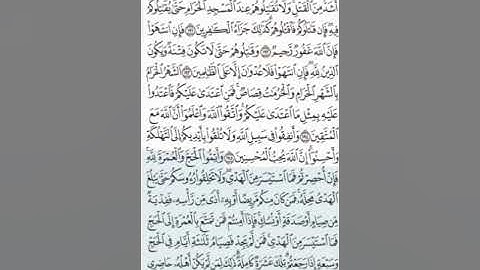 أَشَدُّ مِنَ ٱلْقَتْلِ وَلَا تُقَٰتِلُوهُمْ عِندَ ٱلْمَسْجِدِ ٱلْحَرَامِ حَتَّىٰ يُقَٰتِلُوكُمْ
فِيهِ فَإِن قَٰتَلُوكُمْ فَٱقْتُلُوهُمْ كَذَٰلِكَ جَزَآءُ ٱلْكَٰفِرِينَ ۝١٩١ فَإِنِ ٱنتَهَوْا۟
فَإِنَّ ٱللَّهَ غَفُورٌ رَّحِيمٌ ۝١٩٢ وَقَٰتِلُوهُمْ حَتَّىٰ لَا تَكُونَ فِتْنَةٌ وَيَكُونَ
ٱلدِّينُ لِلَّهِ فَإِنِ ٱنتَهَوْا۟ فَلَا عُدْوَٰنَ إِلَّا عَلَى ٱلظَّٰلِمِينَ ۝١٩٣ ٱلشَّهْرُ ٱلْحَرَامُ
بِٱلشَّهْرِ ٱلْحَرَامِ وَٱلْحُرُمَٰتُ قِصَاصٌ فَمَنِ ٱعْتَدَىٰ عَلَيْكُمْ فَٱعْتَدُوا۟
عَلَيْهِ بِمِثْلِ مَا ٱعْتَدَىٰ عَلَيْكُمْ وَٱتَّقُوا۟ ٱللَّهَ وَٱعْلَمُوٓا۟ أَنَّ ٱللَّهَ مَعَ
ٱلْمُتَّقِينَ ۝١٩٤ وَأَنفِقُوا۟ فِى سَبِيلِ ٱللَّهِ وَلَا تُلْقُوا۟ بِأَيْدِيكُمْ إِلَى ٱلتَّهْلُكَةِ
وَأَحْسِنُوٓا۟ إِنَّ ٱللَّهَ يُحِبُّ ٱلْمُحْسِنِينَ ۝١٩٥ وَأَتِمُّوا۟ ٱلْحَجَّ وَٱلْعُمْرَةَ لِلَّهِ
فَإِنْ أُحْصِرْتُمْ فَمَا ٱسْتَيْسَرَ مِنَ ٱلْهَدْىِ وَلَا تَحْلِقُوا۟ رُءُوسَكُمْ حَتَّىٰ يَبْلُغَ
ٱلْهَدْىُ مَحِلَّهُۥ فَمَن كَانَ مِنكُم مَّرِيضًا أَوْ بِهِۦٓ أَذًى مِّن رَّأْسِهِۦ فَفِدْيَةٌ
مِّن صِيَامٍ أَوْ صَدَقَةٍ أَوْ نُسُكٍ فَإِذَآ أَمِنتُمْ فَمَن تَمَتَّعَ بِٱلْعُمْرَةِ إِلَى ٱلْحَجِّ
فَمَا ٱسْتَيْسَرَ مِنَ ٱلْهَدْىِ فَمَن لَّمْ يَجِدْ فَصِيَامُ ثَلَٰثَةِ أَيَّامٍ فِى ٱلْحَجِّ
وَسَبْعَةٍ إِذَا رَجَعْتُمْ تِلْكَ عَشَرَةٌ كَامِلَةٌ ذَٰلِكَ لِمَن لَّمْ يَكُنْ أَهْلُهُۥ حَاضِرِى